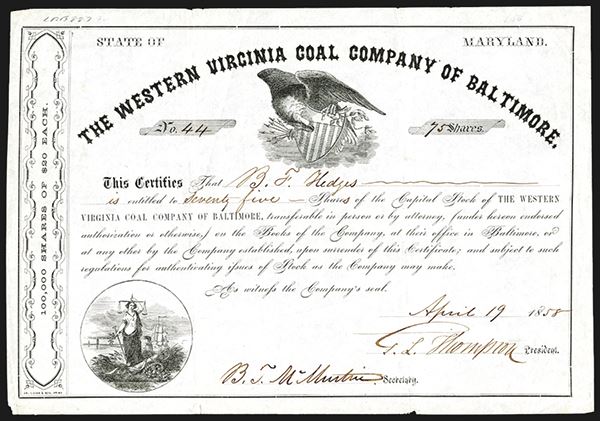 STATE OF MARYLAND.
THE WESTERN VIRGINIA COAL COMPANY OF BALTIMORE.
No. 44
75 Shares.
100,000 SHARES OF $20 EACH.
This Certifies That B. F. Hedges
is entitled to Seventy five Shares of the Capital Stock of THE WESTERN
VIRGINIA COAL COMPANY OF BALTIMORE, transferable in person or by attorney, (under hereon endorsed
authorization or otherwise,) on the Books of the Company, at their office in Baltimore, or
at any other by the Company established, upon surrender of this Certificate; and subject to such
regulations for authenticating issues of Stock as the Company may make.
As witness the Company's seal.
April 19 1858
G. L. Thompson President.
B. T. Secretary.